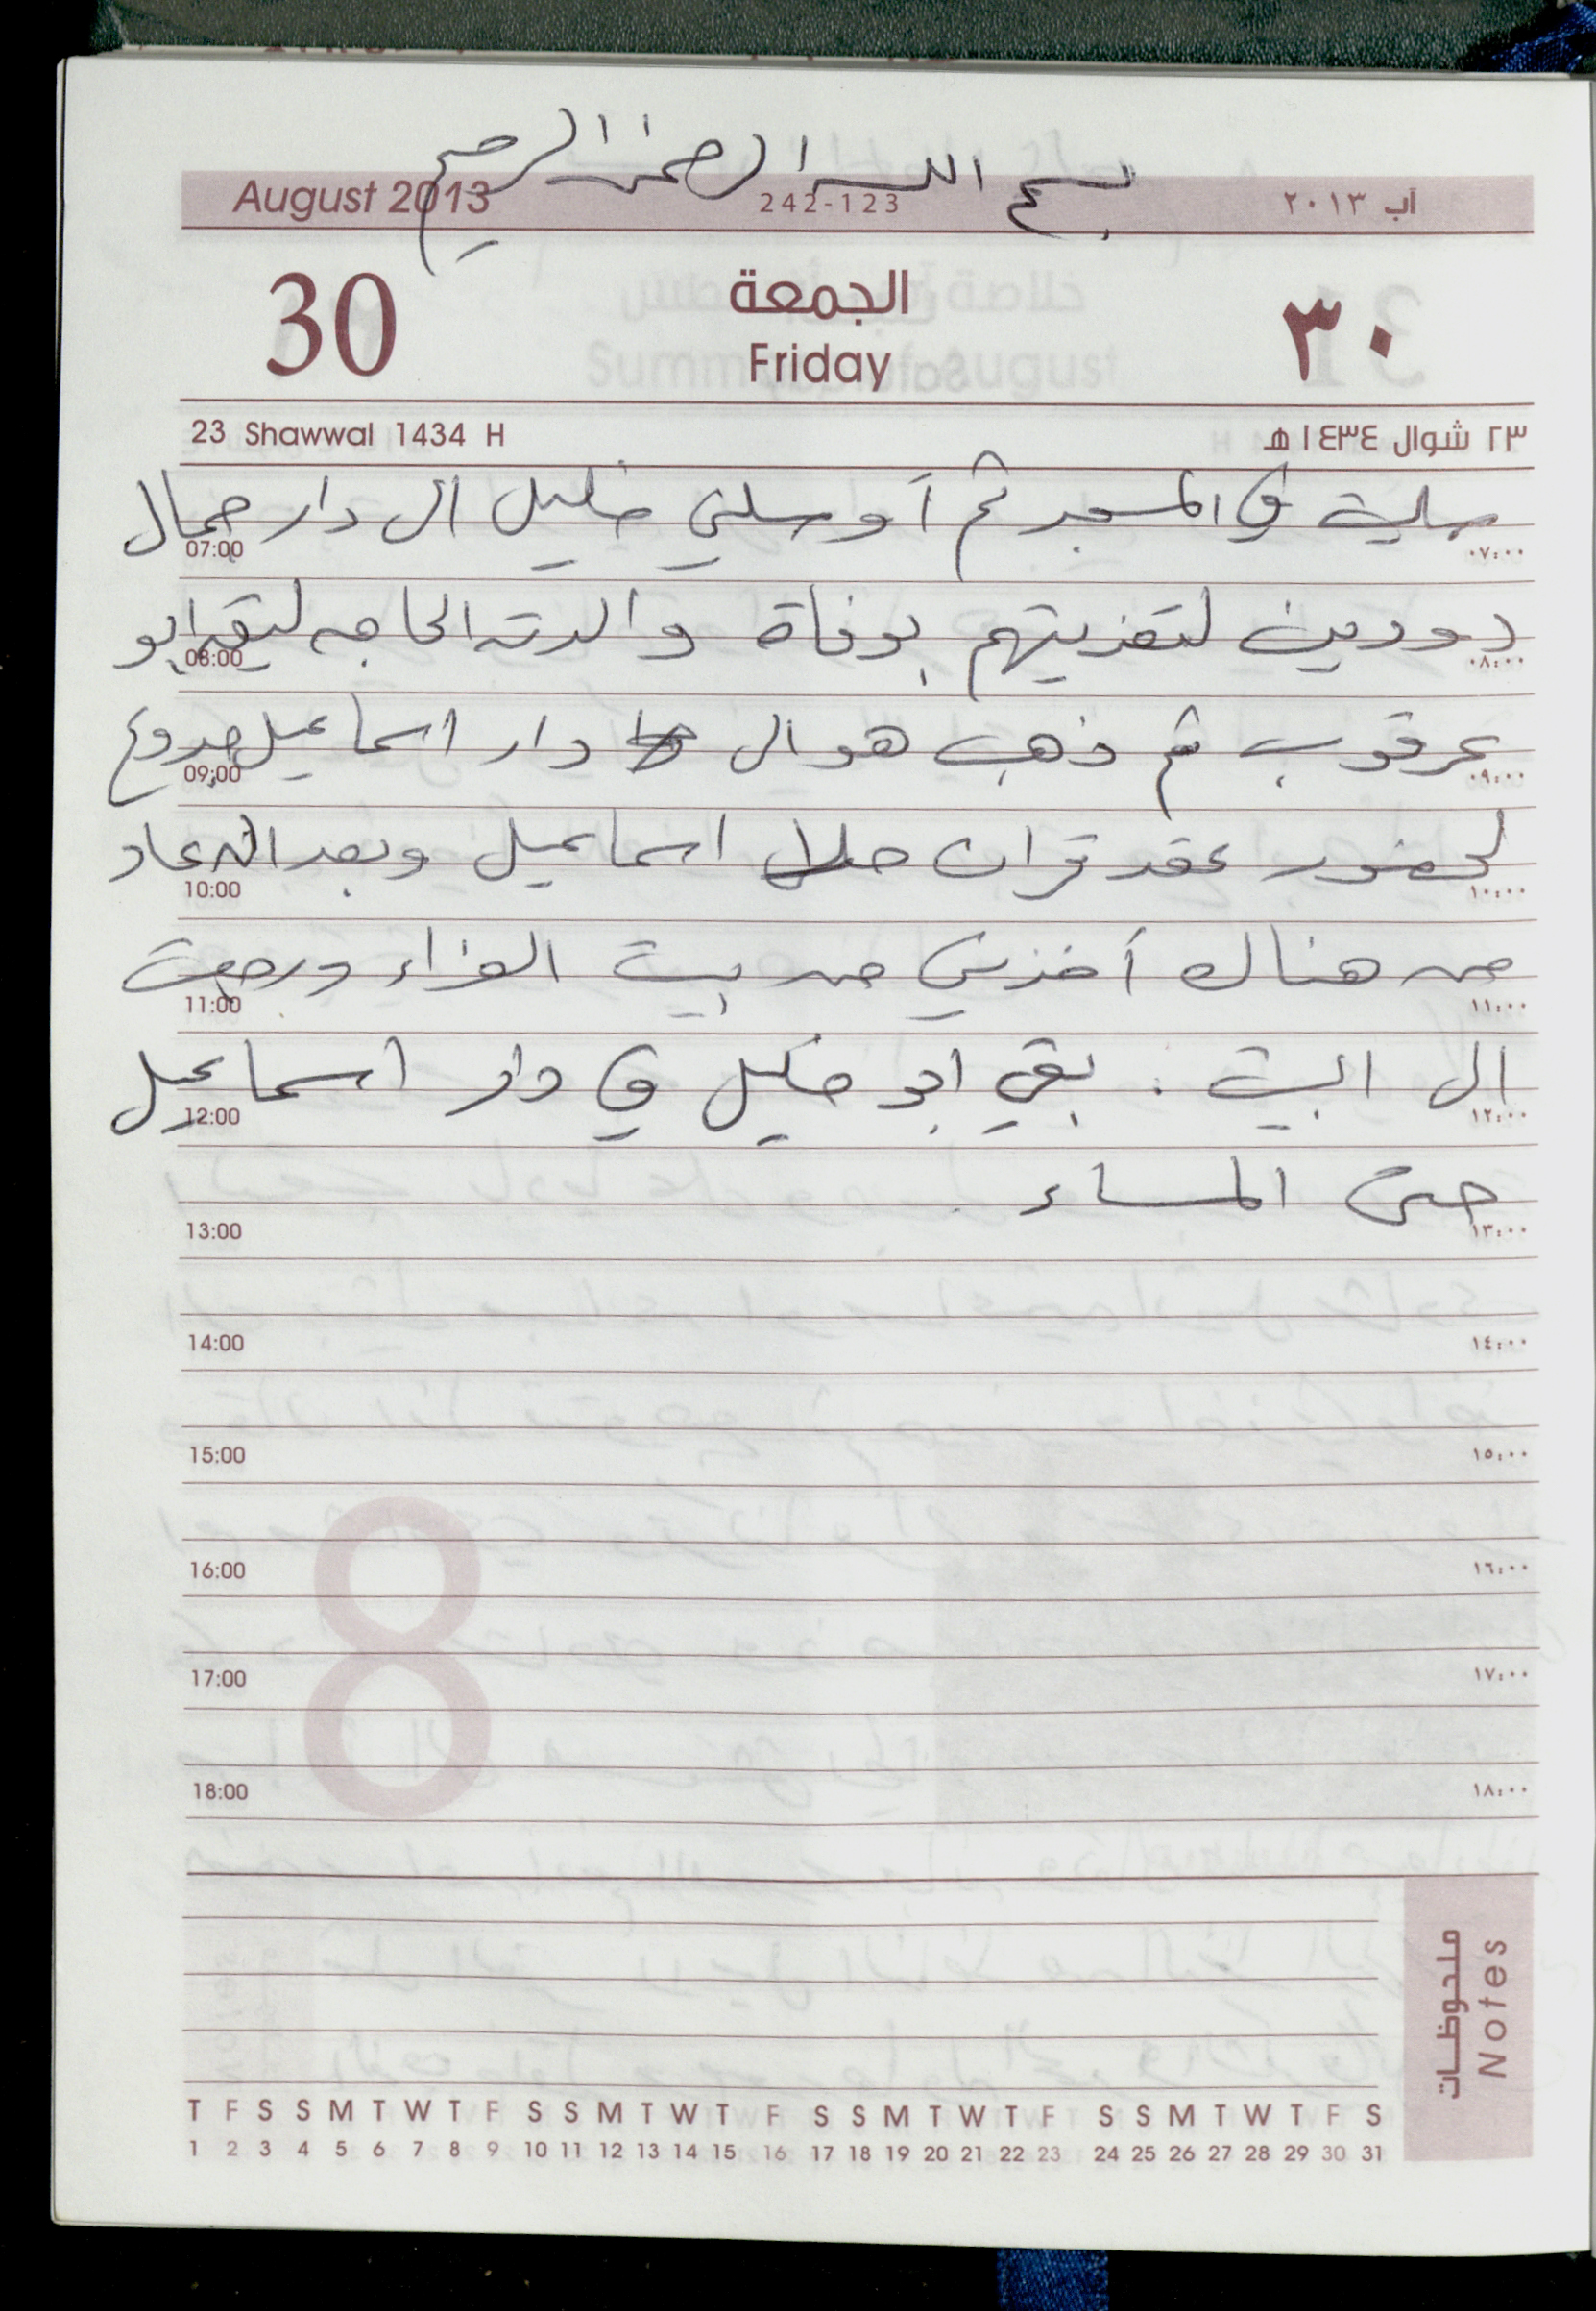 بسم الله الرحمن الرحيم
August 2013 242-123 آب ٢٠١٣
30 الجمعة ٣٠
Friday
23 Shawwal 1434 H ٢٣ شوال ١٤٣٤ هـ
صليت في المسجد ثم أوصلني خليل الى دار جمال
07:00 ٠٧:٠٠
دودين لتعزيتهم بوفاة والدته الحاجه ابو
08:00 ٠٨:٠٠
عرقوب ثم ذهب هو الى دار اسماعيل
09:00 ٠٩:٠٠
لحضور عقد قران اسماعيل وبعد ان عاد
10:00 ١٠:٠٠
من هناك أخذني من بيت العزاء ورجعت
11:00 ١١:٠٠
الى البيت . بقي ابو خليل في دار اسماعيل
12:00 ١٢:٠٠
حتى المساء .
13:00 ١٣:٠٠
14:00 ١٤:٠٠
15:00 ١٥:٠٠
16:00 ١٦:٠٠
17:00 ١٧:٠٠
18:00 ١٨:٠٠
8
ملحوظات
Notes
T F S S M T W T F S S M T W T F S S M T W T F S S M T W T F S
1 2 3 4 5 6 7 8 9 10 11 12 13 14 15 16 17 18 19 20 21 22 23 24 25 26 27 28 29 30 31